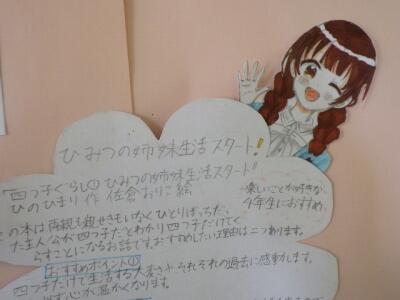 ひみつの姉妹生活スタート!
「四つ子ぐらし① ひみつの姉妹生活スタート!」
ひのひまり 作 佐倉おりこ 絵
楽しいことが好きな
4年生におすすめ。
の本は両親も親せきもいなくひとりぼっちだっ
た主人公が四つ子だとわかり四つ子だけでく
らすことになるお話です。おすすめしたい理由は二つあります。
おすすめポイント①
四つ子だけで生活する大変さ、それぞれの過去に感動します。
心が温かくなります。